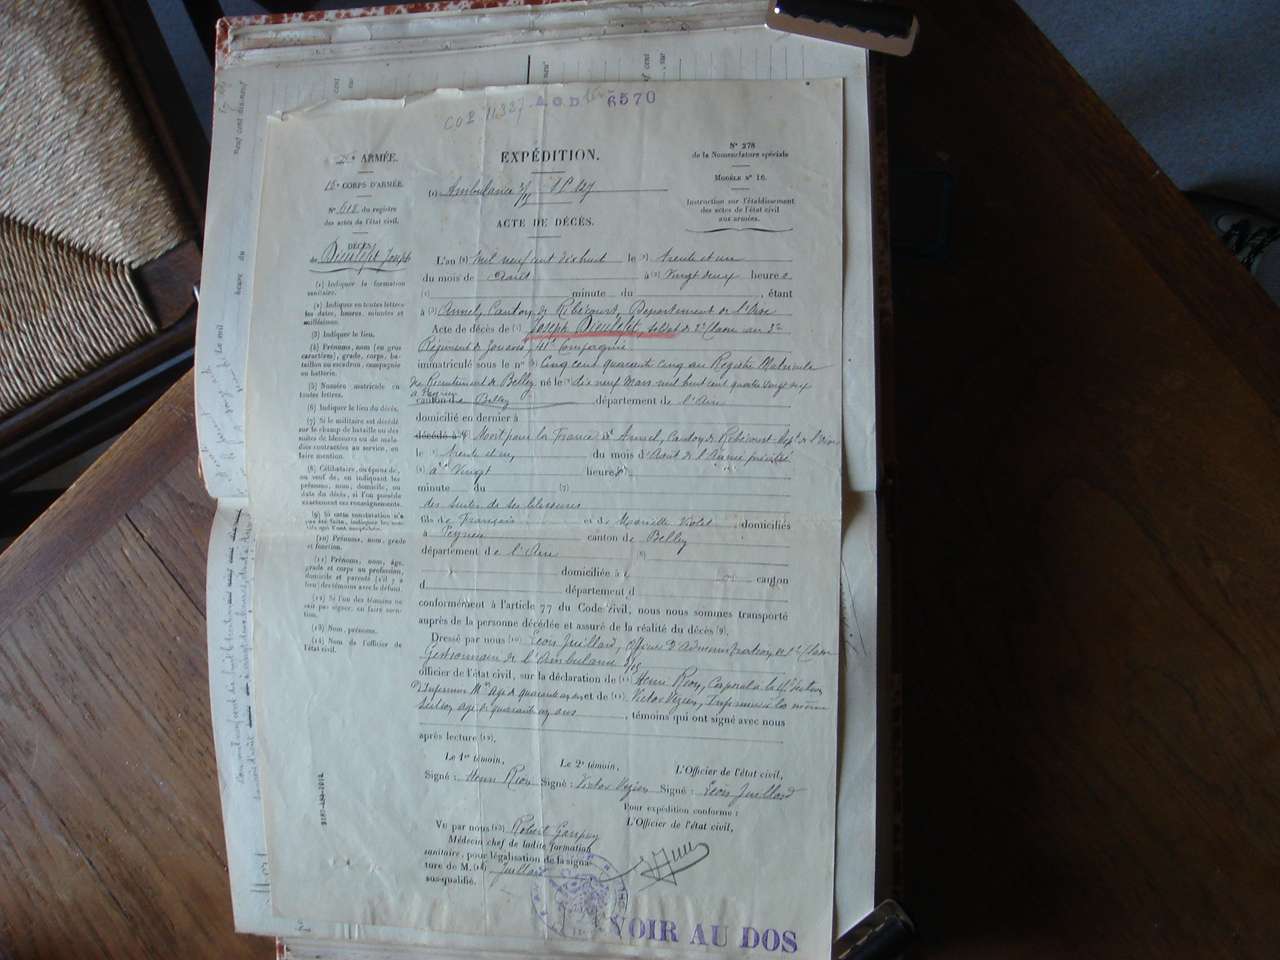 A.G.D. 6570
COR 11.327
ARMÉE.
18e CORPS D'ARMÉE.
N° 618 du registre
des actes de l'état civil.
DÉCÈS
de Dieulefet Joseph
(1) Indiquer la formation
sanitaire.
(2) Indiquer en toutes lettres
les dates, heures, minutes et
millésimes.
(3) Indiquer le lieu.
(4) Prénoms, nom (en gros
caractères), grade, corps, ba-
taillon ou escadron, compagnie
ou batterie.
(5) Numéro matricule en
toutes lettres.
(6) Indiquer le lieu du décès.
(7) Si le militaire est décédé
sur le champ de bataille ou des
suites de blessures ou de mala-
dies contractées au service, en
faire mention.
(8) Célibataire, ou époux de,
ou veuf de, en indiquant les
prénoms, nom, domicile, ou
date du décès, si l'on possède
exactement ces renseignements.
(9) Si cette constatation n'a
pas été faite, indiquer les mo-
tifs qui l'ont empêchée.
(10) Prénoms, nom, grade
et fonction.
(11) Prénoms, nom, âge,
grade et corps ou profession,
domicile et parenté (s'il y a
lieu) des témoins avec le défunt.
(12) Si l'un des témoins ne
sait pas signer, en faire men-
tion.
(13) Nom, prénoms.
(14) Nom de l'officier de
l'état civil.
EXPÉDITION.
(1) Ambulance 3/15 SP 127
ACTE DE DÉCÈS.
N° 278
de la Nomenclature spéciale
MODÈLE N° 16.
Instruction sur l'établissement
des actes de l'état civil
aux armées.
L'an (2) mil neuf cent dix huit le (2) trente et un
du mois de Août à (2) vingt deux heures
(2) minute du , étant
à (3) Annel, Canton de Ribécourt, Département de l'Oise
Acte de décès de (4) Joseph Dieulefet, soldat de 2e Classe au 2e
Régiment de Zouaves, 41e Compagnie
immatriculé sous le n° (5) Cinq cent quarante cinq au Registre Matricule
de Recrutement de Belley né le dix neuf Mars mil huit cent quatre vingt dix
à Peyrieu
canton de Belley département de l'Ain
domicilié en dernier à
décédé à (6) Mort pour la France à Annel, Canton de Ribécourt Dept de l'Oise
le trente et un du mois d'Août de l'Année précitée
à vingt heures
minute du (7)
des suites de ses blessures
fils de François et de Marielle Violet domiciliés
à Peyrieu canton de Belley
département de l'Ain (8)
domiciliée à canton
d département d
conformément à l'article 77 du Code civil, nous nous sommes transporté
auprès de la personne décédée et assuré de la réalité du décès (9).
Dressé par nous (10) Léon Juillard, Officier d'Administration de 1e Classe
Gestionnaire de l'Ambulance 3/15
officier de l'état civil, sur la déclaration de (11) Henri Rion, Caporal à la
Infirmier âgé de quarante ans et de (11) Victor Vézien, Infirmier à la même
Section, âgé de quarante ans , témoins qui ont signé avec nous
après lecture (12).
Le 1er témoin, Le 2e témoin, L'Officier de l'état civil,
Signé : Henri Rion Signé : Victor Vézien Signé : Léon Juillard
Pour expédition conforme :
L'Officier de l'état civil,
Vu par nous (13) Robert
Médecin chef de ladite formation
sanitaire, pour légalisation de la signa-
ture de M. (14) Juillard
sus-qualifié.
VOIR AU DOS